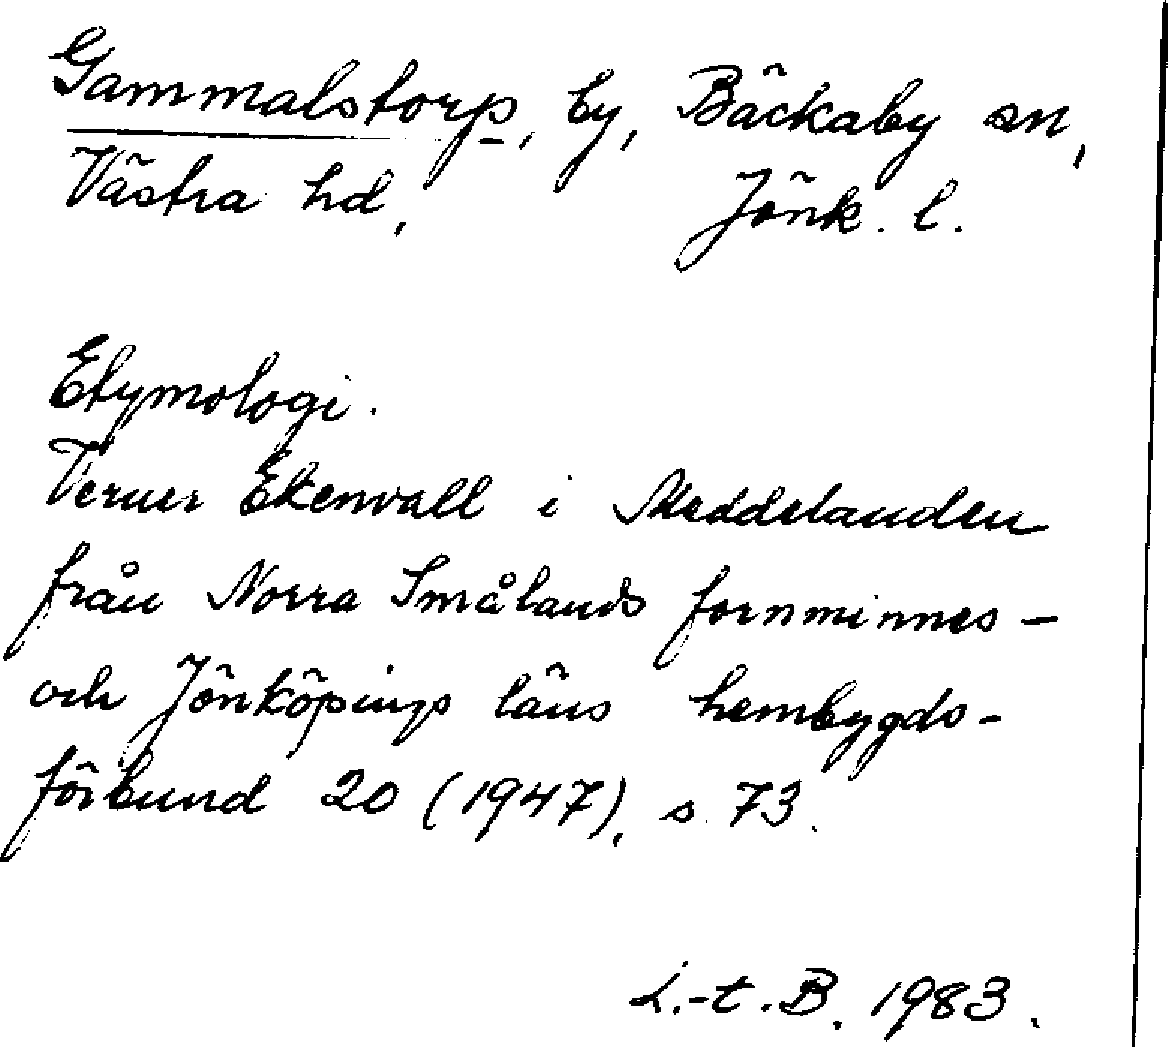 Gammalstorp, by, Bäckaby sn,
Västra hd, Jönk. l.
Etymologi.
Verner Ekenvall i Meddelanden
från Norra Smålands fornminnes-
och Jönköpings läns hembygds-
förbund 20 (1947), s. 73.
L.-t. B. 1983.